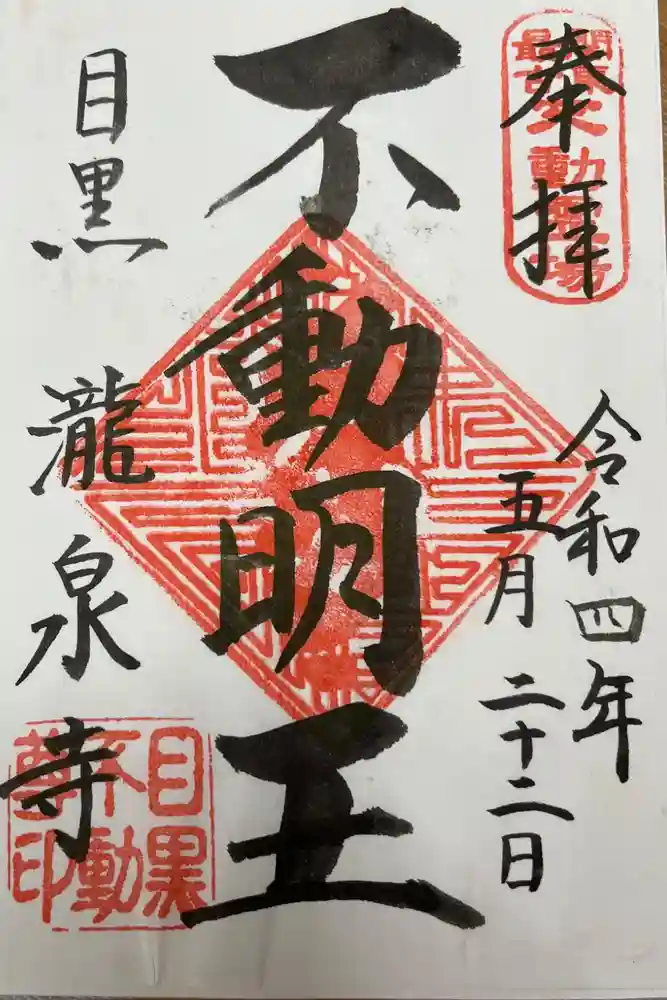 奉拝
関東最古不動霊場
令和四年
五月二十二日
不動明王
目黒瀧泉寺
目黒
不動
尊印